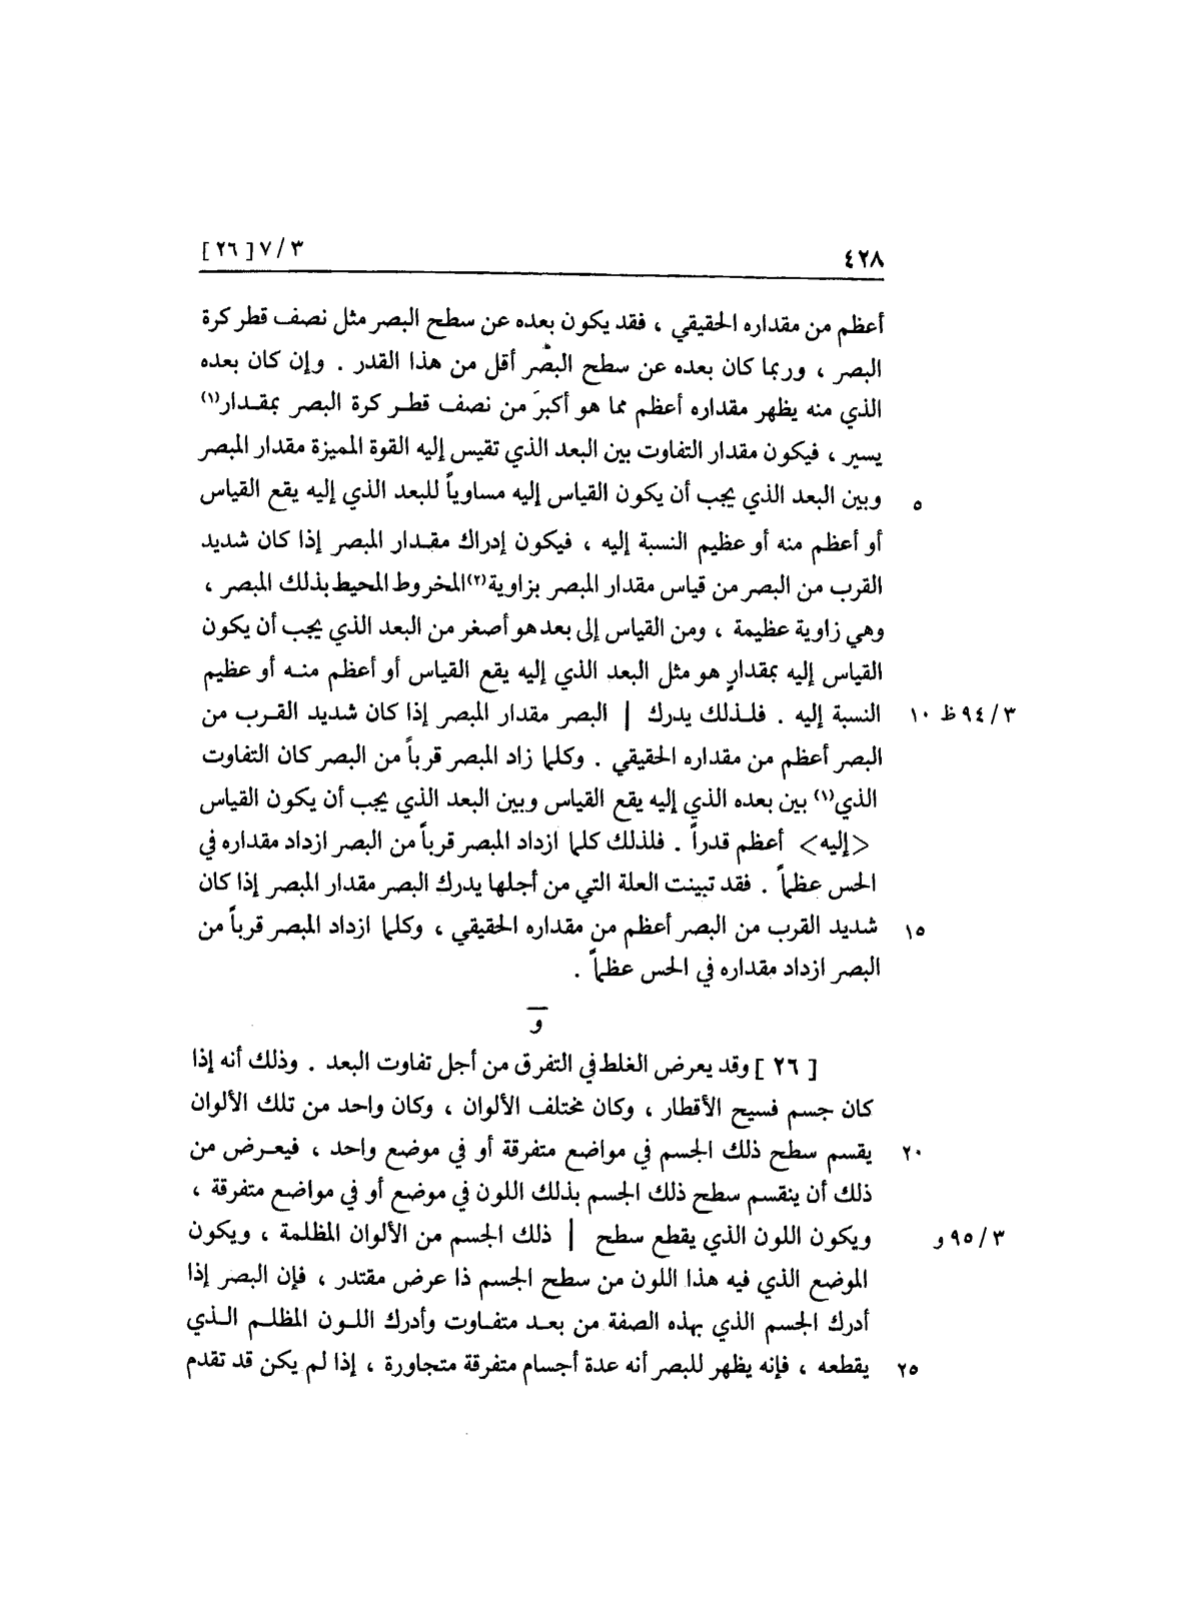 ٤٢٨
٧/٣ [ ٢٦ ]
أعظم من مقداره الحقيقي ، فقد يكون بعده عن سطح البصر مثل نصف قطر كرة
البصر ، وربما كان بعده عن سطح البصر أقل من هذا القدر . وإن كان بعده
الذي منه يظهر مقداره أعظم مما هو أكبرَ من نصف قطر كرة البصر بمقدار(١)
يسير ، فيكون مقدار التفاوت بين البعد الذي تقيس إليه القوة المميزة مقدار المبصر
٥ وبين البعد الذي يجب أن يكون القياس إليه مساوياً للبعد الذي إليه يقع القياس
أو أعظم منه أو عظيم النسبة إليه ، فيكون إدراك مقدار المبصر إذا كان شديد
القرب من البصر من قياس مقدار المبصر بزاوية(٢) المخروط المحيط بذلك المبصر ،
وهي زاوية عظيمة ، ومن القياس إلى بعد هو أصغر من البعد الذي يجب أن يكون
القياس إليه بمقدارٍ هو مثل البعد الذي إليه يقع القياس أو أعظم منه أو عظيم
٩٤/٣ ظ ١٠ النسبة إليه . فلذلك يدرك | البصر مقدار المبصر إذا كان شديد القرب من
البصر أعظم من مقداره الحقيقي . وكلما زاد المبصر قرباً من البصر كان التفاوت
الذي(١) بين بعده الذي إليه يقع القياس وبين البعد الذي يجب أن يكون القياس
<إليه> أعظم قدراً . فلذلك كلما ازداد المبصر قرباً من البصر ازداد مقداره في
الحس عظماً . فقد تبينت العلة التي من أجلها يدرك البصر مقدار المبصر إذا كان
١٥ شديد القرب من البصر أعظم من مقداره الحقيقي ، وكلما ازداد المبصر قرباً من
البصر ازداد مقداره في الحس عظماً .
و
[ ٢٦ ] وقد يعرض الغلط في التفرق من أجل تفاوت البعد . وذلك أنه إذا
كان جسم فسيح الأقطار ، وكان مختلف الألوان ، وكان واحد من تلك الألوان
٢٠ يقسم سطح ذلك الجسم في مواضع متفرقة أو في موضع واحد ، فيعرض من
ذلك أن ينقسم سطح ذلك الجسم بذلك اللون في موضع أو في مواضع متفرقة ،
٩٥/٣ و ويكون اللون الذي يقطع سطح | ذلك الجسم من الألوان المظلمة ، ويكون
الموضع الذي فيه هذا اللون من سطح الجسم ذا عرض مقتدر ، فإن البصر إذا
أدرك الجسم الذي بهذه الصفة من بعد متفاوت وأدرك اللون المظلم الذي
٢٥ يقطعه ، فإنه يظهر للبصر أنه عدة أجسام متفرقة متجاورة ، إذا لم يكن قد تقدم